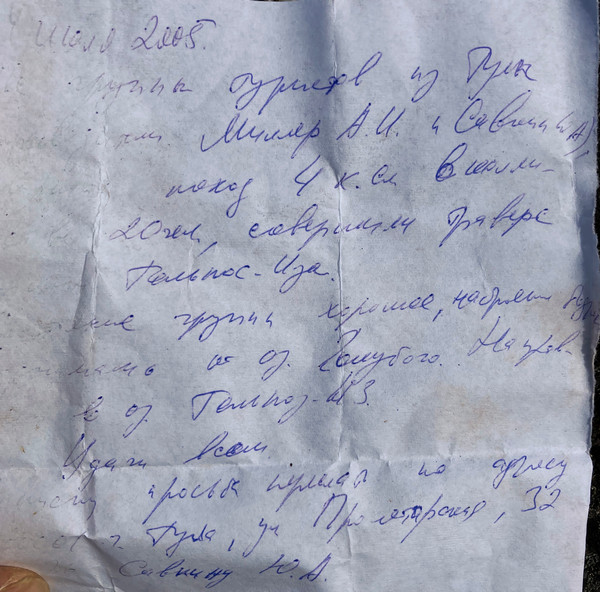 Июля 2005.
группы туристов из Тулы
Миллер А.И. и Савкин Ю.А),
поход 4 к.сл в колли-
20чел, совершили траверс
Тельпос-Иза.
группы хорошее, набрали
от оз. Голубого. Направ-
в оз. Тельпоз-ИЗ.
Удачи всем
просьба переслать по адресу
г. Тула, ул Пролетарская, 32
Савкину Ю.А.